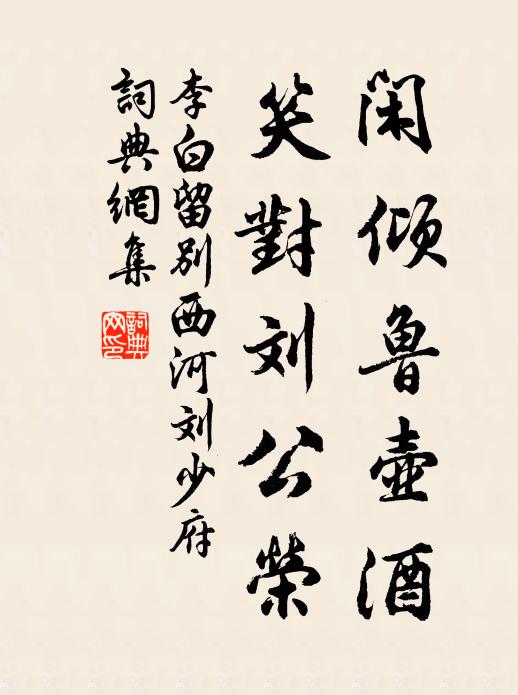 闲倾鲁壶酒
笑對刘公榮
李白留别西河刘少府
詞典網集
詞典网印